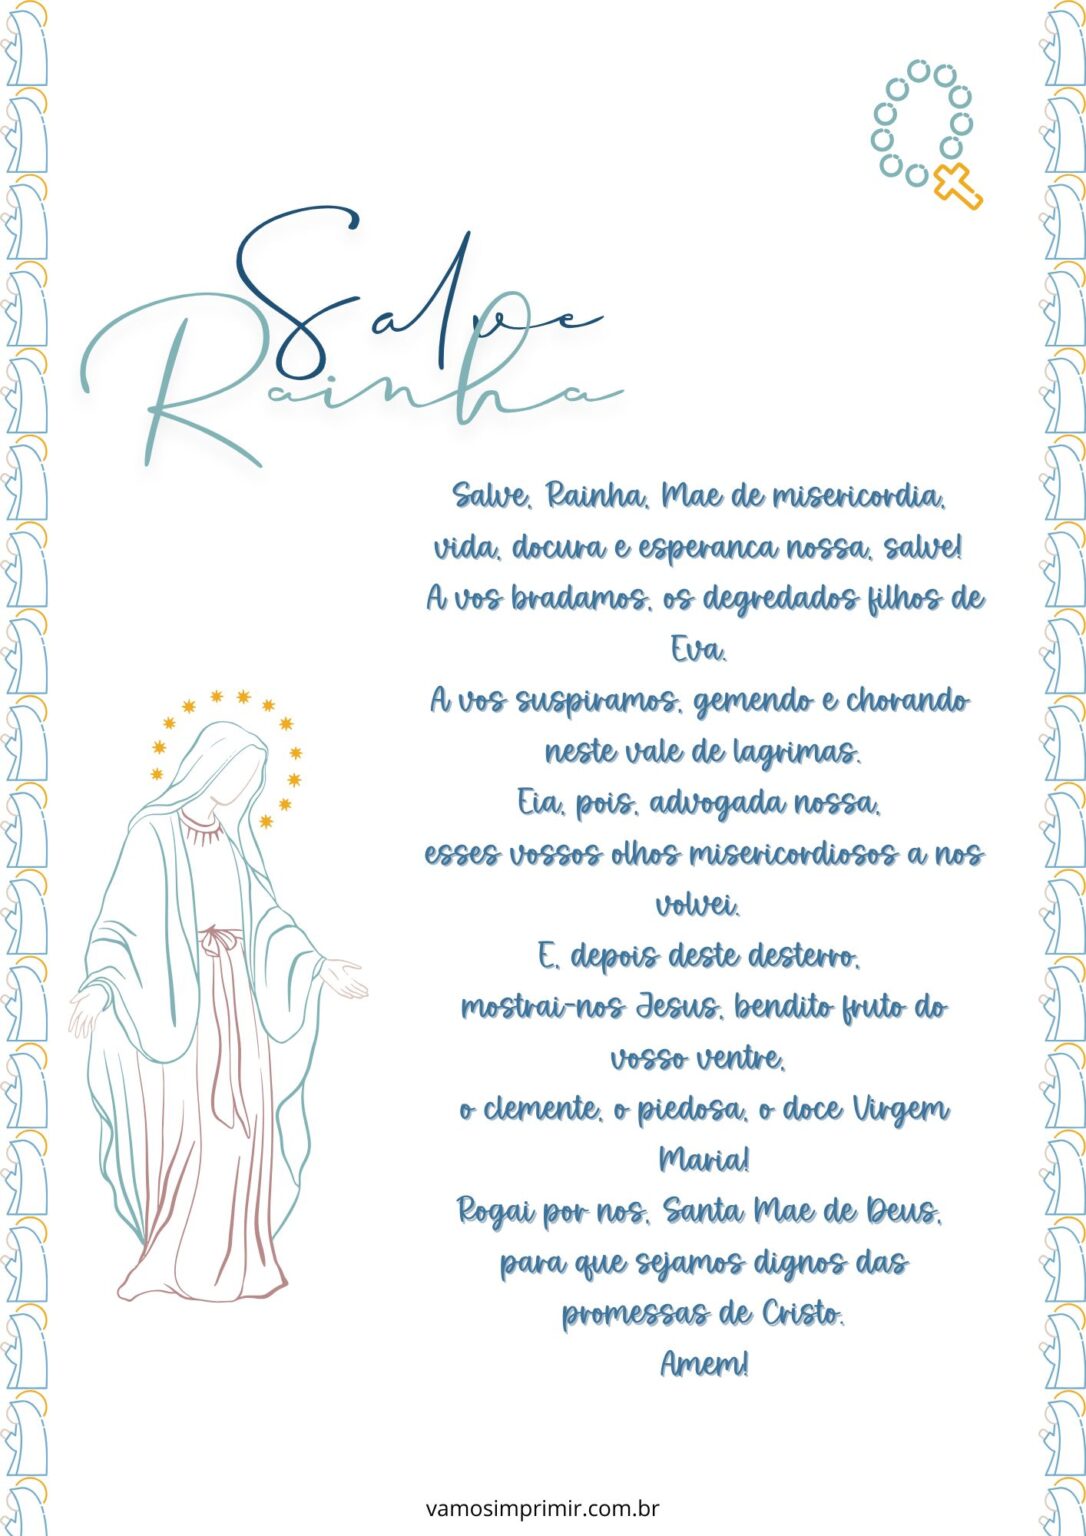 Salve
Rainha
Salve, Rainha, Mae de misericordia,
vida, docura e esperanca nossa, salve!
A vos bradamos, os degredados filhos de
Eva.
A vos suspiramos, gemendo e chorando
neste vale de lagrimas.
Eia, pois, advogada nossa,
esses vossos olhos misericordiosos a nos
volvei.
E, depois deste desterro,
mostrai-nos Jesus, bendito fruto do
vosso ventre,
o clemente, o piedosa, o doce Virgem
Maria!
Rogai por nos, Santa Mae de Deus,
para que sejamos dignos das
promessas de Cristo.
Amem!
vamosimprimir.com.br